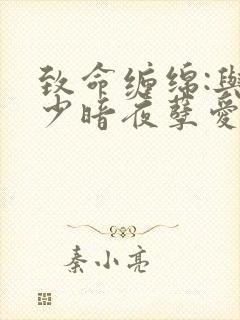 致命缠绵:與
少暗夜孽爱
秦小亮